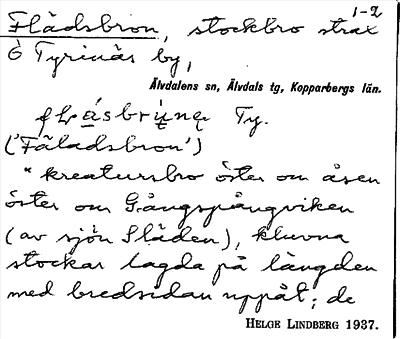 1-2
Flådsbron, stockbro strax
Ö Tyrinäs by,
Älvdalens sn, Älvdals tg, Kopparbergs län.
Ty.
('Fäladsbron')
"kreatursbro öster om åsen
öster om Gångspångviken
(av sjön Släden), kluvna
stockar lagda på längden
med bredsidan uppåt; de
HELGE LINDBERG 1937.